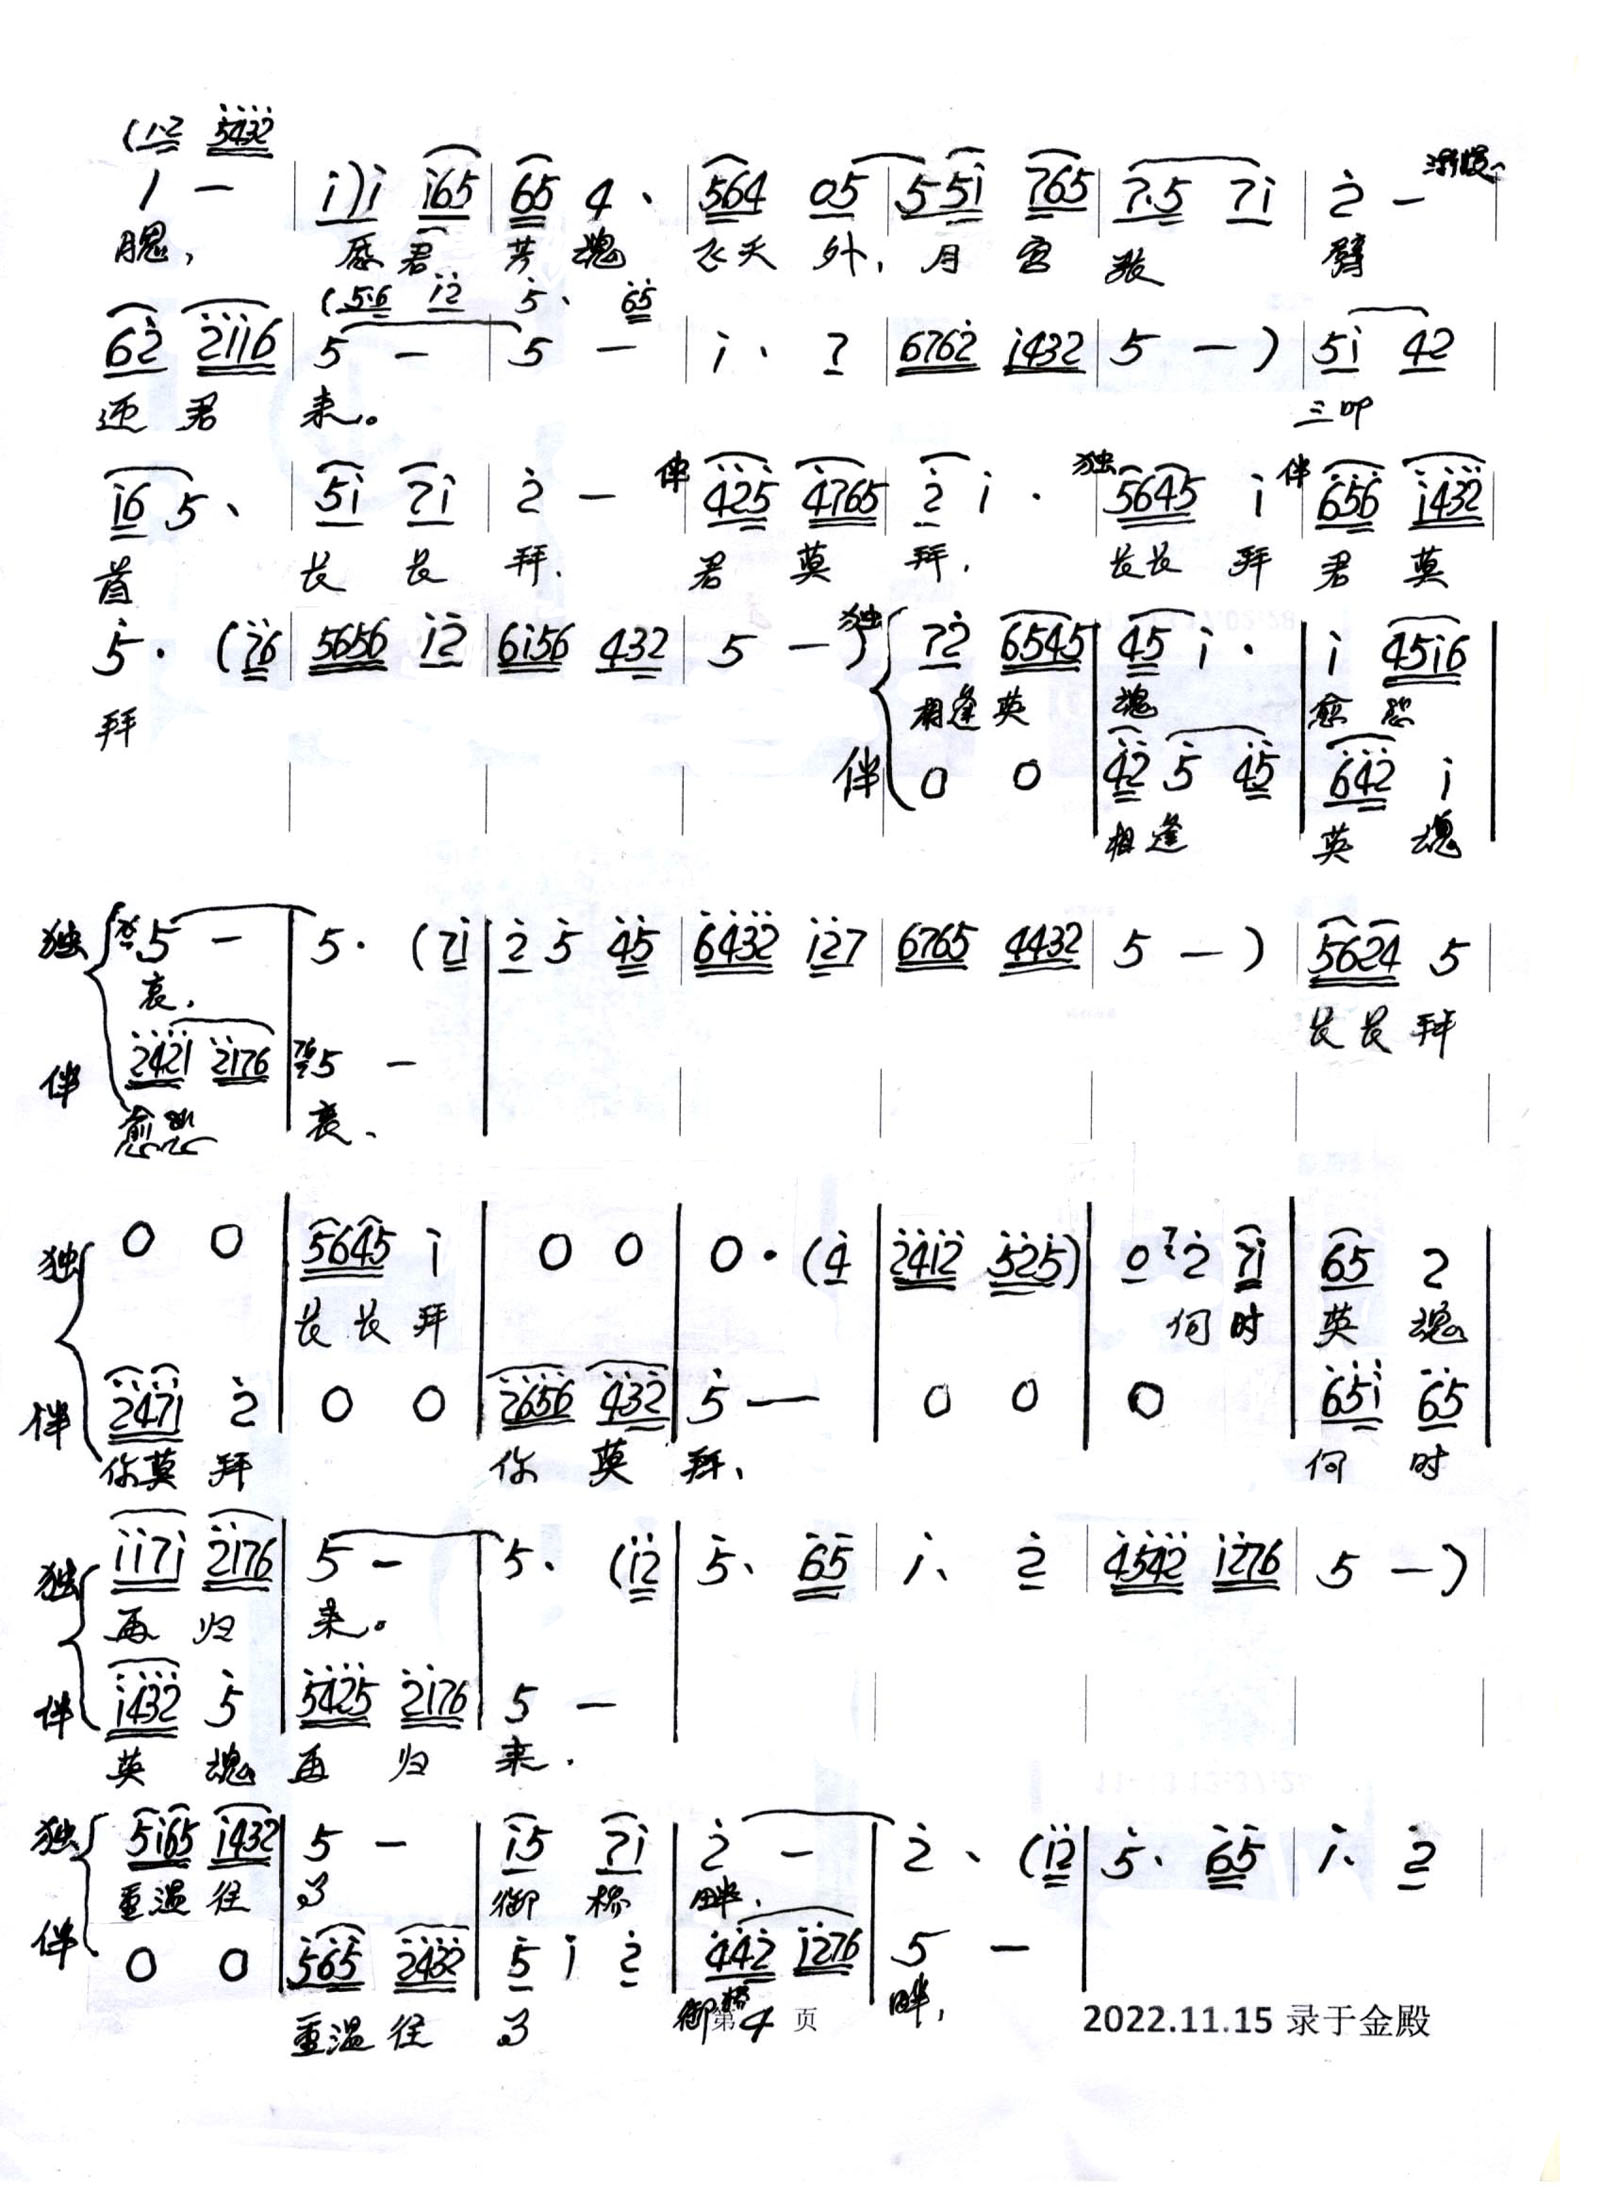 (1·2 5432
1 — | i) i i65 | 65 4 · | 564 05 | 5 5i 765 | 7·5 7i | 2 — 渐慢
腮, 愿君 芳魂 飞天 外, 月 宫 敞 臂
(5·6 i2 5 · 65
62 2ii6 | 5 — | 5 — | i · 7 | 6762 i432 | 5 — ) | 5i 42
还 君 来。 三叩
i6 5 · | 5i 7i | 2 — | 伴 425 4765 | 2 i · | 独 5645 i | 伴 656 i432
首 长 长 拜, 君 莫 拜, 长长 拜 君 莫
5 · (76 | 5656 i2 | 6i56 432 | 5 — ) | 独 72 6545 | 45 i · | i 45i6
拜 相逢 英 魂 愈 恐
伴 0 0 | 42 5 45 | 642 i
相逢 英 魂
独 5 — | 5 · (7i | 2 5 45 | 6432 i27 | 6765 4432 | 5 — ) | 5624 5
哀, 长长 拜
伴 2421 2176 | 76 5 —
愈恐 哀、
独 0 0 | 5645 i | 0 0 | 0 · (4 | 2412 525) | 0 7 2 7i | 65 2
长长 拜 何 时 英 魂
伴 2471 2 | 0 0 | 2656 432 | 5 — | 0 0 | 0 | 65i 65
你莫 拜 你 莫 拜、 何 时
独 ii7i 2176 | 5 — | 5 · (i2 | 5 · 65 | i · 2 | 4542 i276 | 5 — )
再 归 来。
伴 i432 5 | 5425 2176 | 5 —
英 魂 再 归 来.
独 5i65 i432 | 5 — | i5 7i | 2 — | 2 · (i2 | 5 · 65 | i · 2
重温 往 御 桥 畔,
伴 0 0 | 565 2432 | 5 i 2 | 442 i276 | 5 —
重温 往 御桥 畔,
第 4 页
2022.11.15 录于金殿